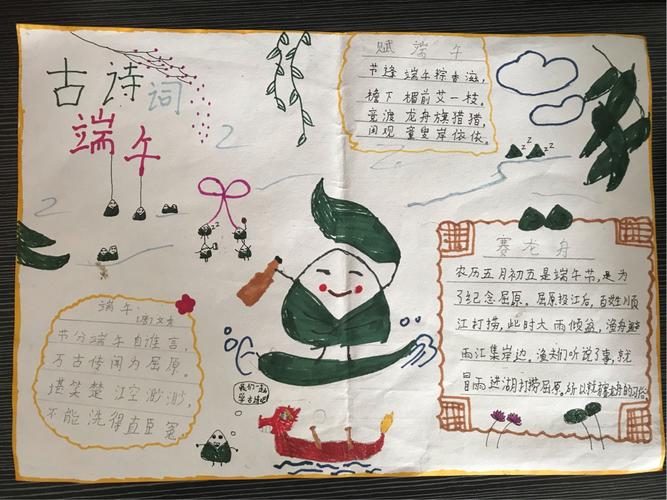 古诗词
端午
赋端午
节逢端午粽香溢，
檐下楣前艾一枝。
竞渡龙舟旗猎猎
闲观童叟岸依依。
端午
(唐)文秀
节分端午自谁言，
万古传闻为屈原。
堪笑楚江空渺渺，
不能洗得直臣冤。
赛龙舟
农历五月初五是端午节，是为
了纪念屈原。屈原投江后，百姓顺
江打捞，此时大雨倾盆，渔舟避
雨汇集岸边。渔夫们听说了事，就
冒雨进湖打捞屈原。所以就有赛龙舟的习俗
我们一起
学古诗吧